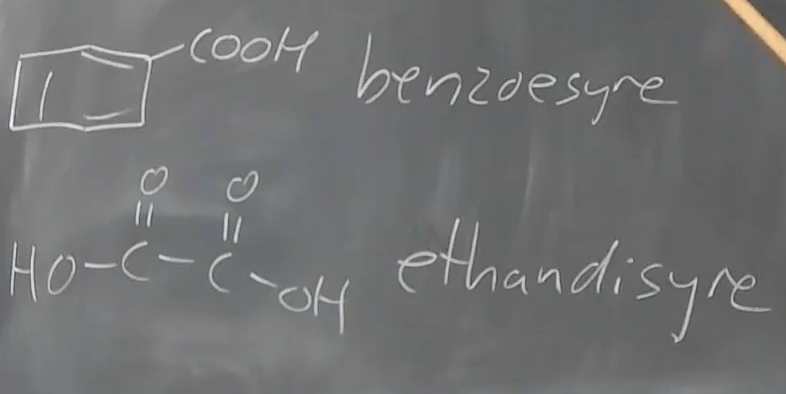 COOH benzoesyre
O O
HO-C-C-OH ethandisyre